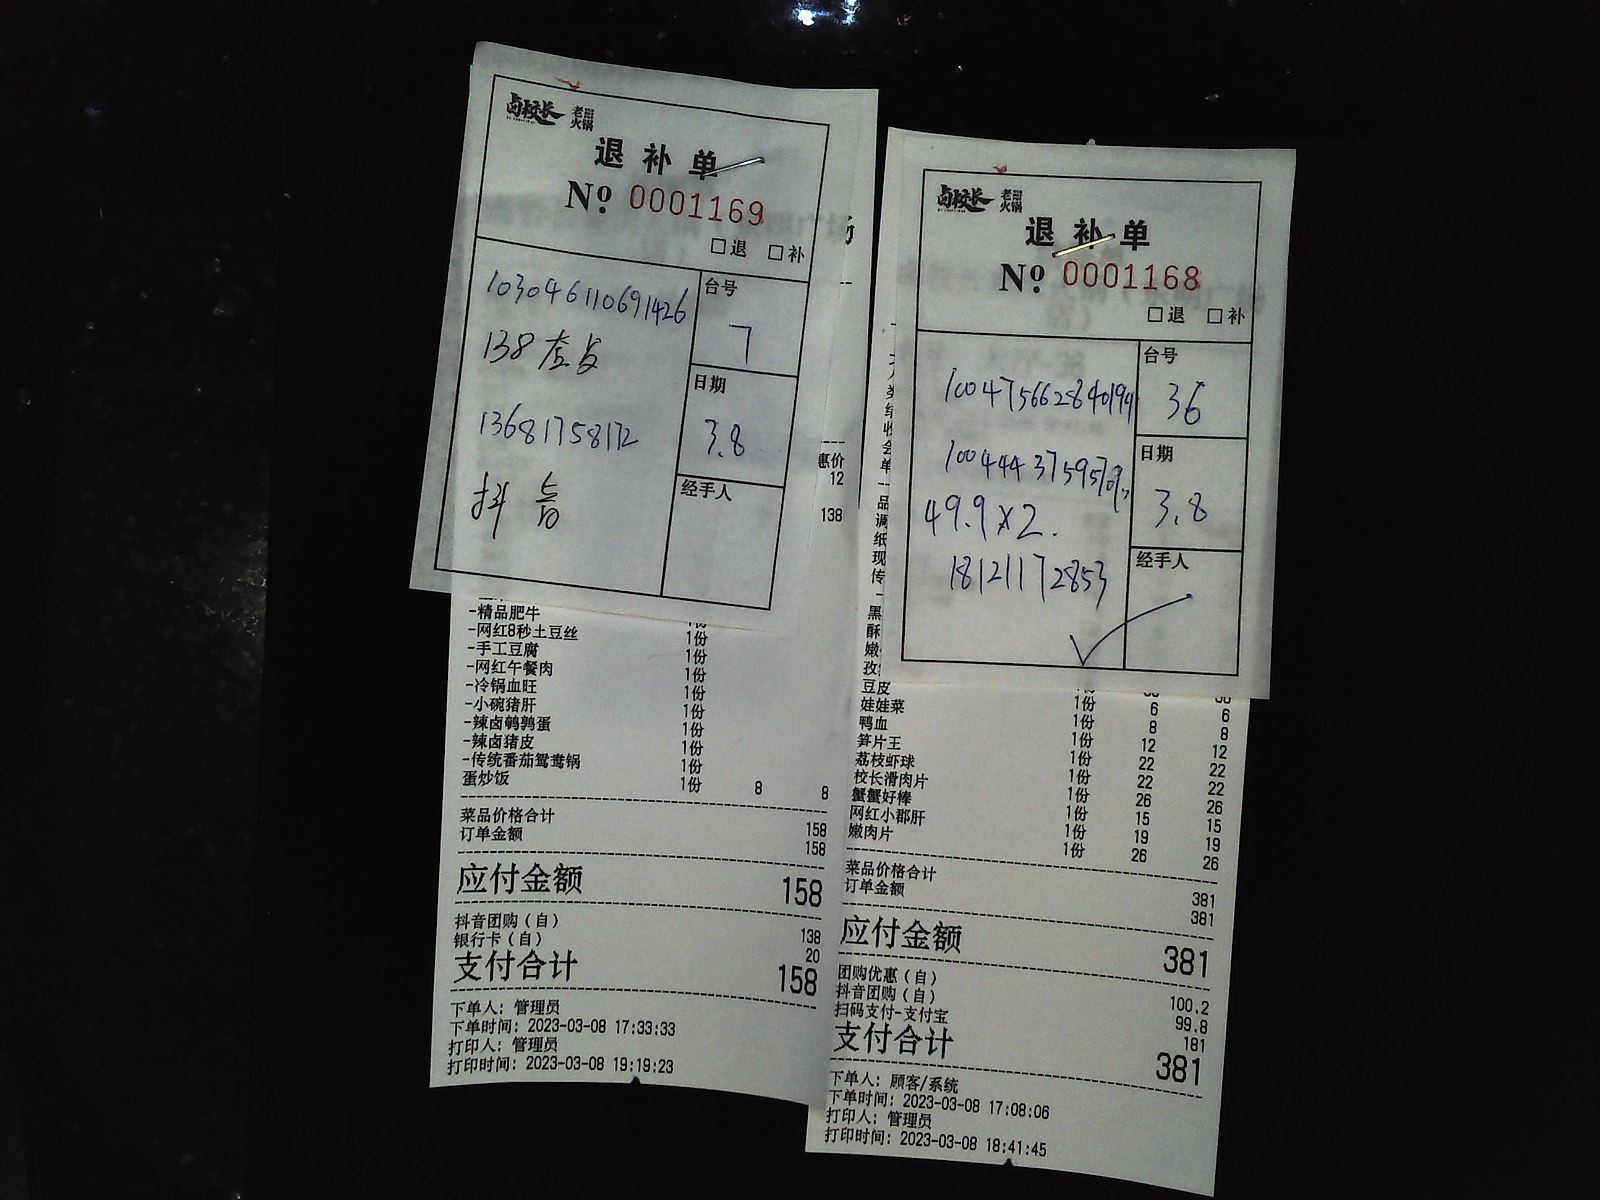 卤校长 老甜火锅
退补单
№ 0001169
□退 □补
台号
7
日期
3.8
经手人
103046110691426
138套餐
13681758172
抖音
惠价
12
138
-精品肥牛 1份
-网红8秒土豆丝 1份
-手工豆腐 1份
-网红午餐肉 1份
-冷锅血旺 1份
-小碗猪肝 1份
-辣卤鹌鹑蛋 1份
-辣卤猪皮 1份
-传统番茄鸳鸯锅 1份
蛋炒饭 1份 8 8
菜品价格合计 158
订单金额 158
应付金额 158
抖音团购(自) 138
银行卡(自) 20
支付合计 158
下单人: 管理员
下单时间: 2023-03-08 17:33:33
打印人: 管理员
打印时间: 2023-03-08 19:19:23
卤校长 老甜火锅
退补单
№ 0001168
□退 □补
台号
36
日期
3.8
经手人
49.9×2.
18121172853
豆皮 1份
娃娃菜 1份 6 6
鸭血 1份 8 8
笋片王 1份 12 12
荔枝虾球 1份 22 22
校长滑肉片 1份 22 22
蟹蟹好棒 1份 26 26
网红小郡肝 1份 15 15
嫩肉片 1份 19 19
1份 26 26
菜品价格合计 381
订单金额 381
应付金额 381
团购优惠(自) 100.2
抖音团购(自) 99.8
扫码支付-支付宝 181
支付合计 381
下单人: 顾客/系统
下单时间: 2023-03-08 17:08:06
打印人: 管理员
打印时间: 2023-03-08 18:41:45